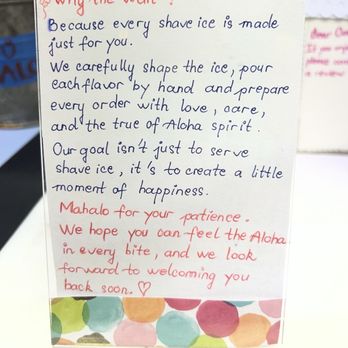 Why the wait?
Because every shave ice is made
just for you.
We carefully shape the ice, pour
each flavor by hand and prepare
every order with love, care,
and the true of Aloha spirit.
Our goal isn't just to serve
shave ice, it's to create a little
moment of happiness.
Mahalo for your patience.
We hope you can feel the Aloha
in every bite, and we look
forward to welcoming you
back soon. ♡